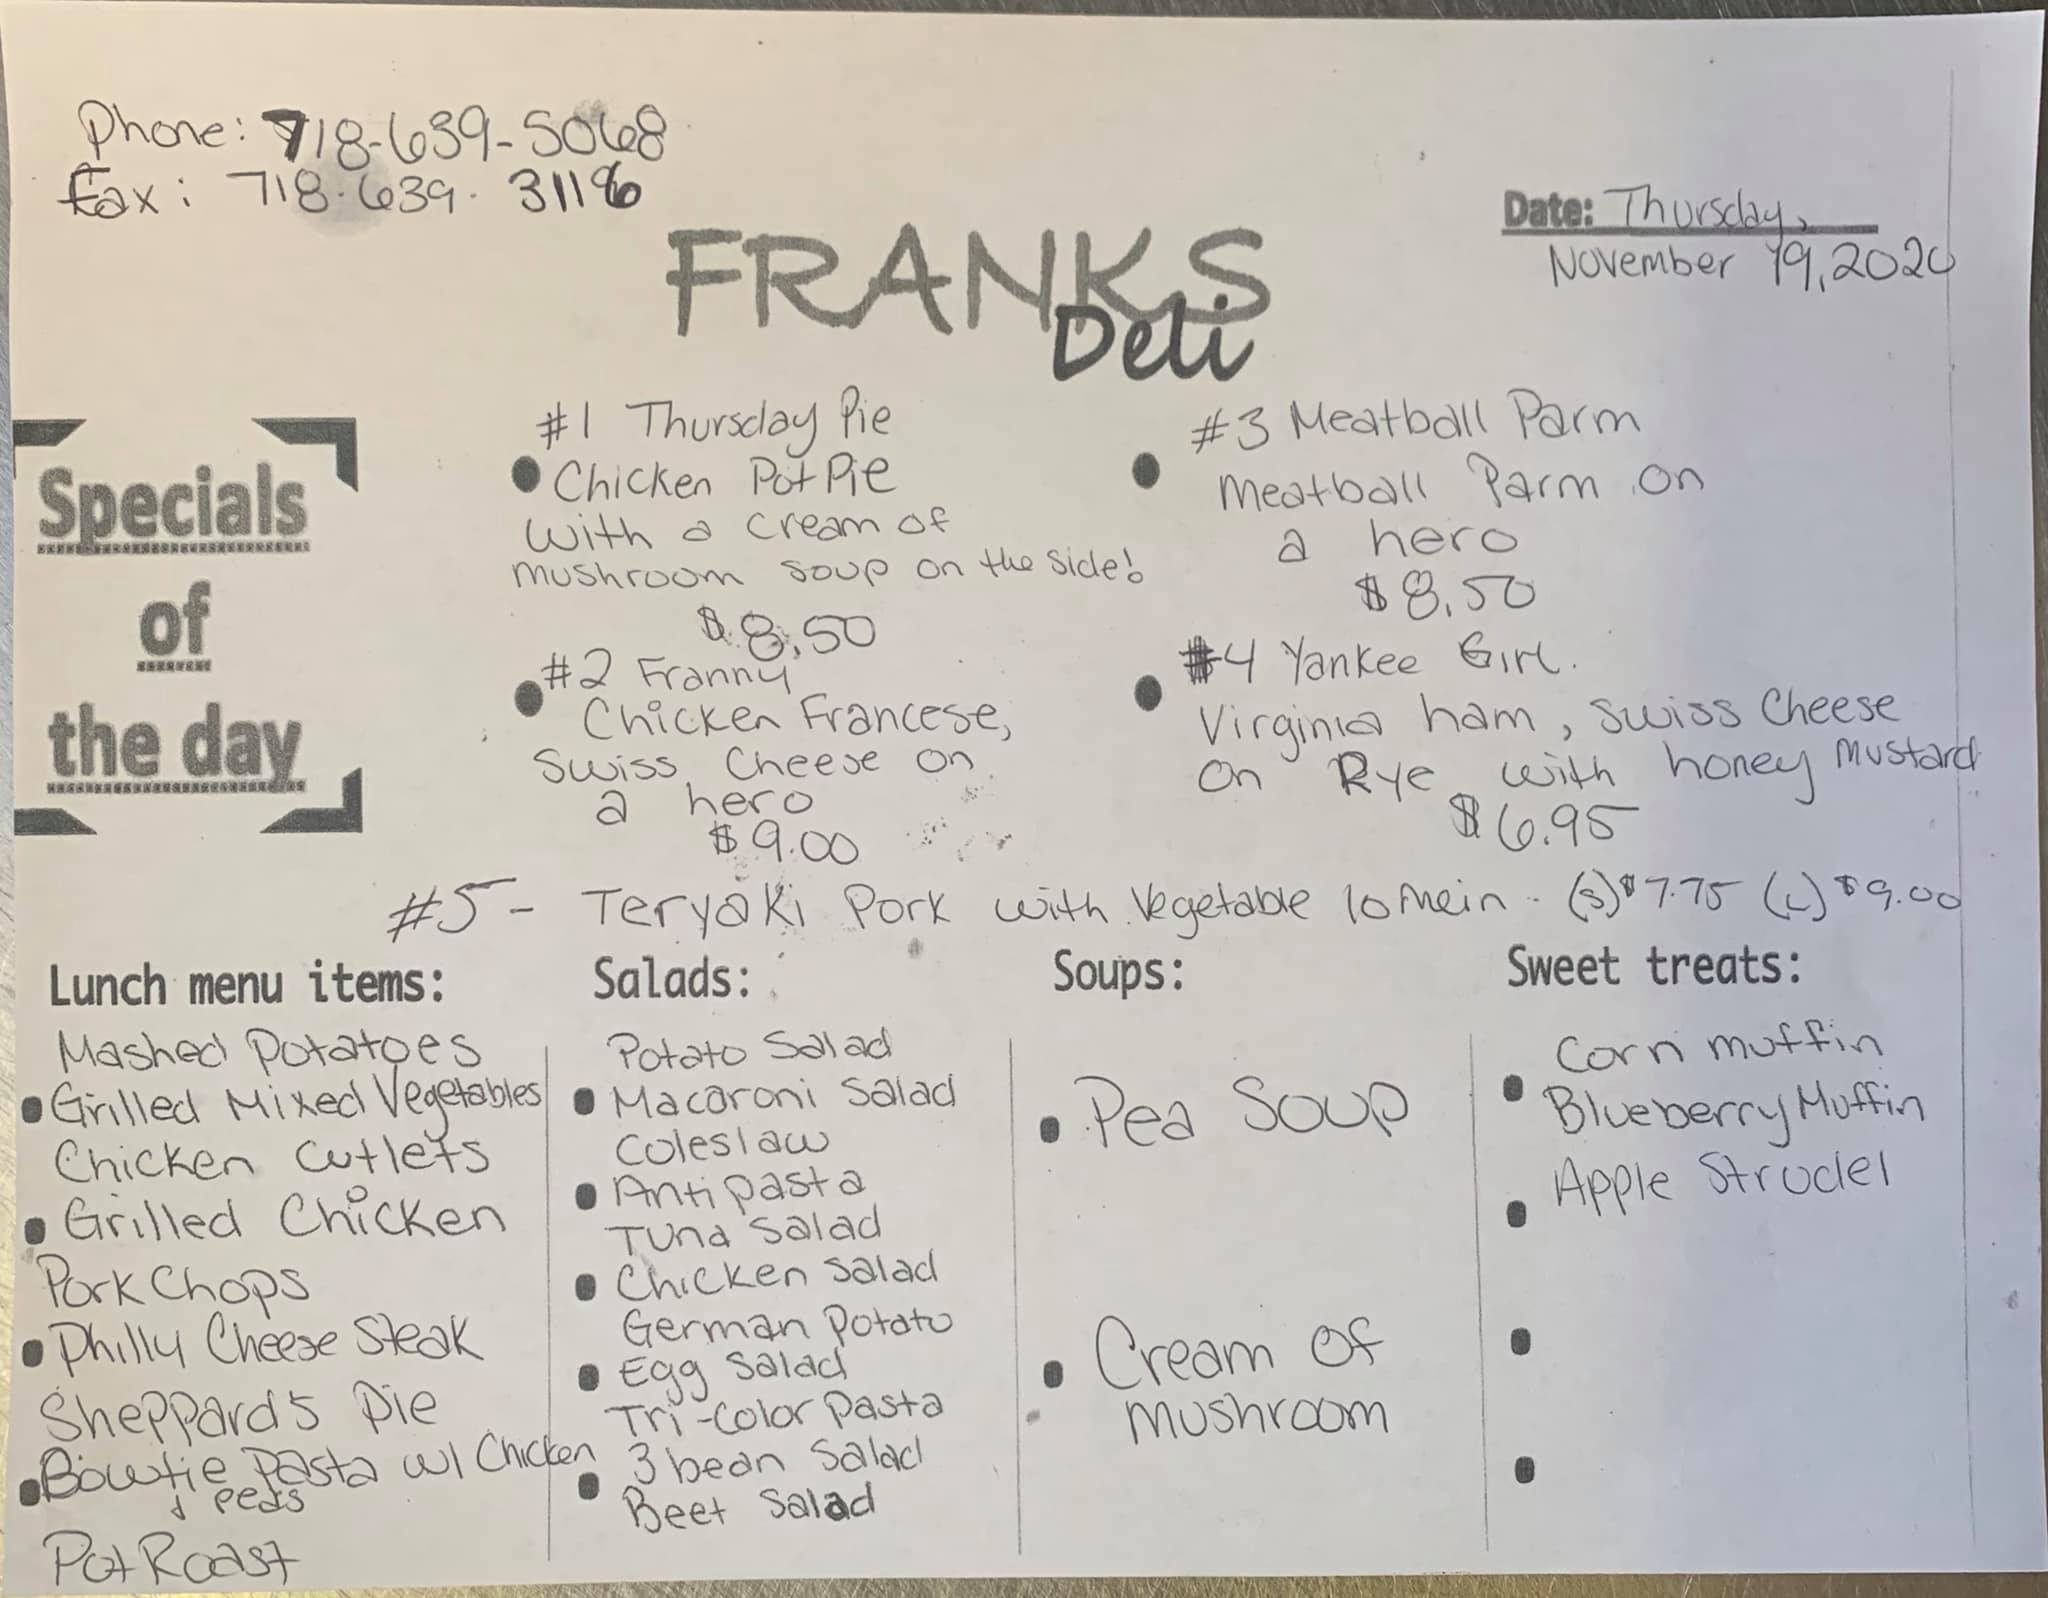 Phone: 718-639-5068
Fax: 718-639-3116
Date: Thursday,
November 19, 2020
FRANKS
Deli
Specials
of
the day
#1 Thursday Pie
Chicken Pot Pie
with a cream of
mushroom soup on the side!
$8.50
#2 Franny
Chicken Francese,
Swiss Cheese on
a hero
$9.00
#3 Meatball Parm
Meatball Parm on
a hero
$8.50
#4 Yankee Girl.
Virginia ham, Swiss Cheese
on Rye with honey mustard
$6.95
#5- Teryaki Pork with Vegetable lo mein - (s) $7.75 (L) $9.00
Lunch menu items:
Mashed Potatoes
Grilled Mixed Vegetables
Chicken Cutlets
Grilled Chicken
Pork Chops
Philly Cheese Steak
Sheppards Pie
Bowtie Pasta w/ Chicken
& peas
Pot Roast
Salads:
Potato Salad
Macaroni Salad
Coleslaw
Antipasta
Tuna Salad
Chicken Salad
German Potato
Egg Salad
Tri-Color Pasta
3 bean Salad
Beet Salad
Soups:
Pea Soup
Cream of
mushroom
Sweet treats:
Corn muffin
Blueberry Muffin
Apple Strudel